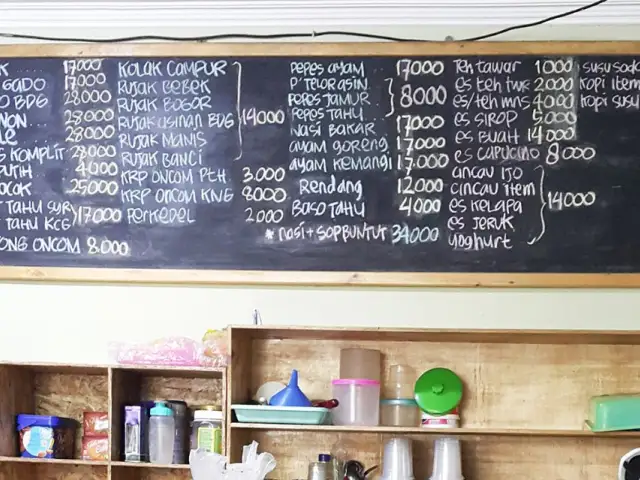 K 17000
GADO 17000
O BDG 28000
NON 28000
le 28000
S KOMPLIT 28000
PUTIH 4000
OCOK 25000
TAHU SYR
TAHU KCG 17000
ONG ONCOM 8.000
KOLAK CAMPUR
RUJAK BEBEK
RUJAK BOGOR
RUJAK ASINAN BDG
RUJAK MANIS
RUJAK BANCI
14000
KRP ONCOM PTH 3.000
KRP ONCOM KNG 8000
PERKEDEL 2000
PEPES AYAM 17000
P TELOR ASIN
PEPES JAMUR
PEPES TAHU
8000
NASI BAKAR 17000
AYAM GORENG 17000
AYAM KEMANGI 17.000
Rendang 12000
BASO TAHU 4000
* nasi + SOP BUNTUT 34000
Teh tawar 1000
es teh twr 2000
es/teh mns 4000
es SIROP 5000
es BUAH 14000
es CAPUCINO 8000
CINCAU IJO
CINCAU ITEM
es KELAPA
es JERUK
yoghurt
14000
susu soda
kopi item
kopi susu